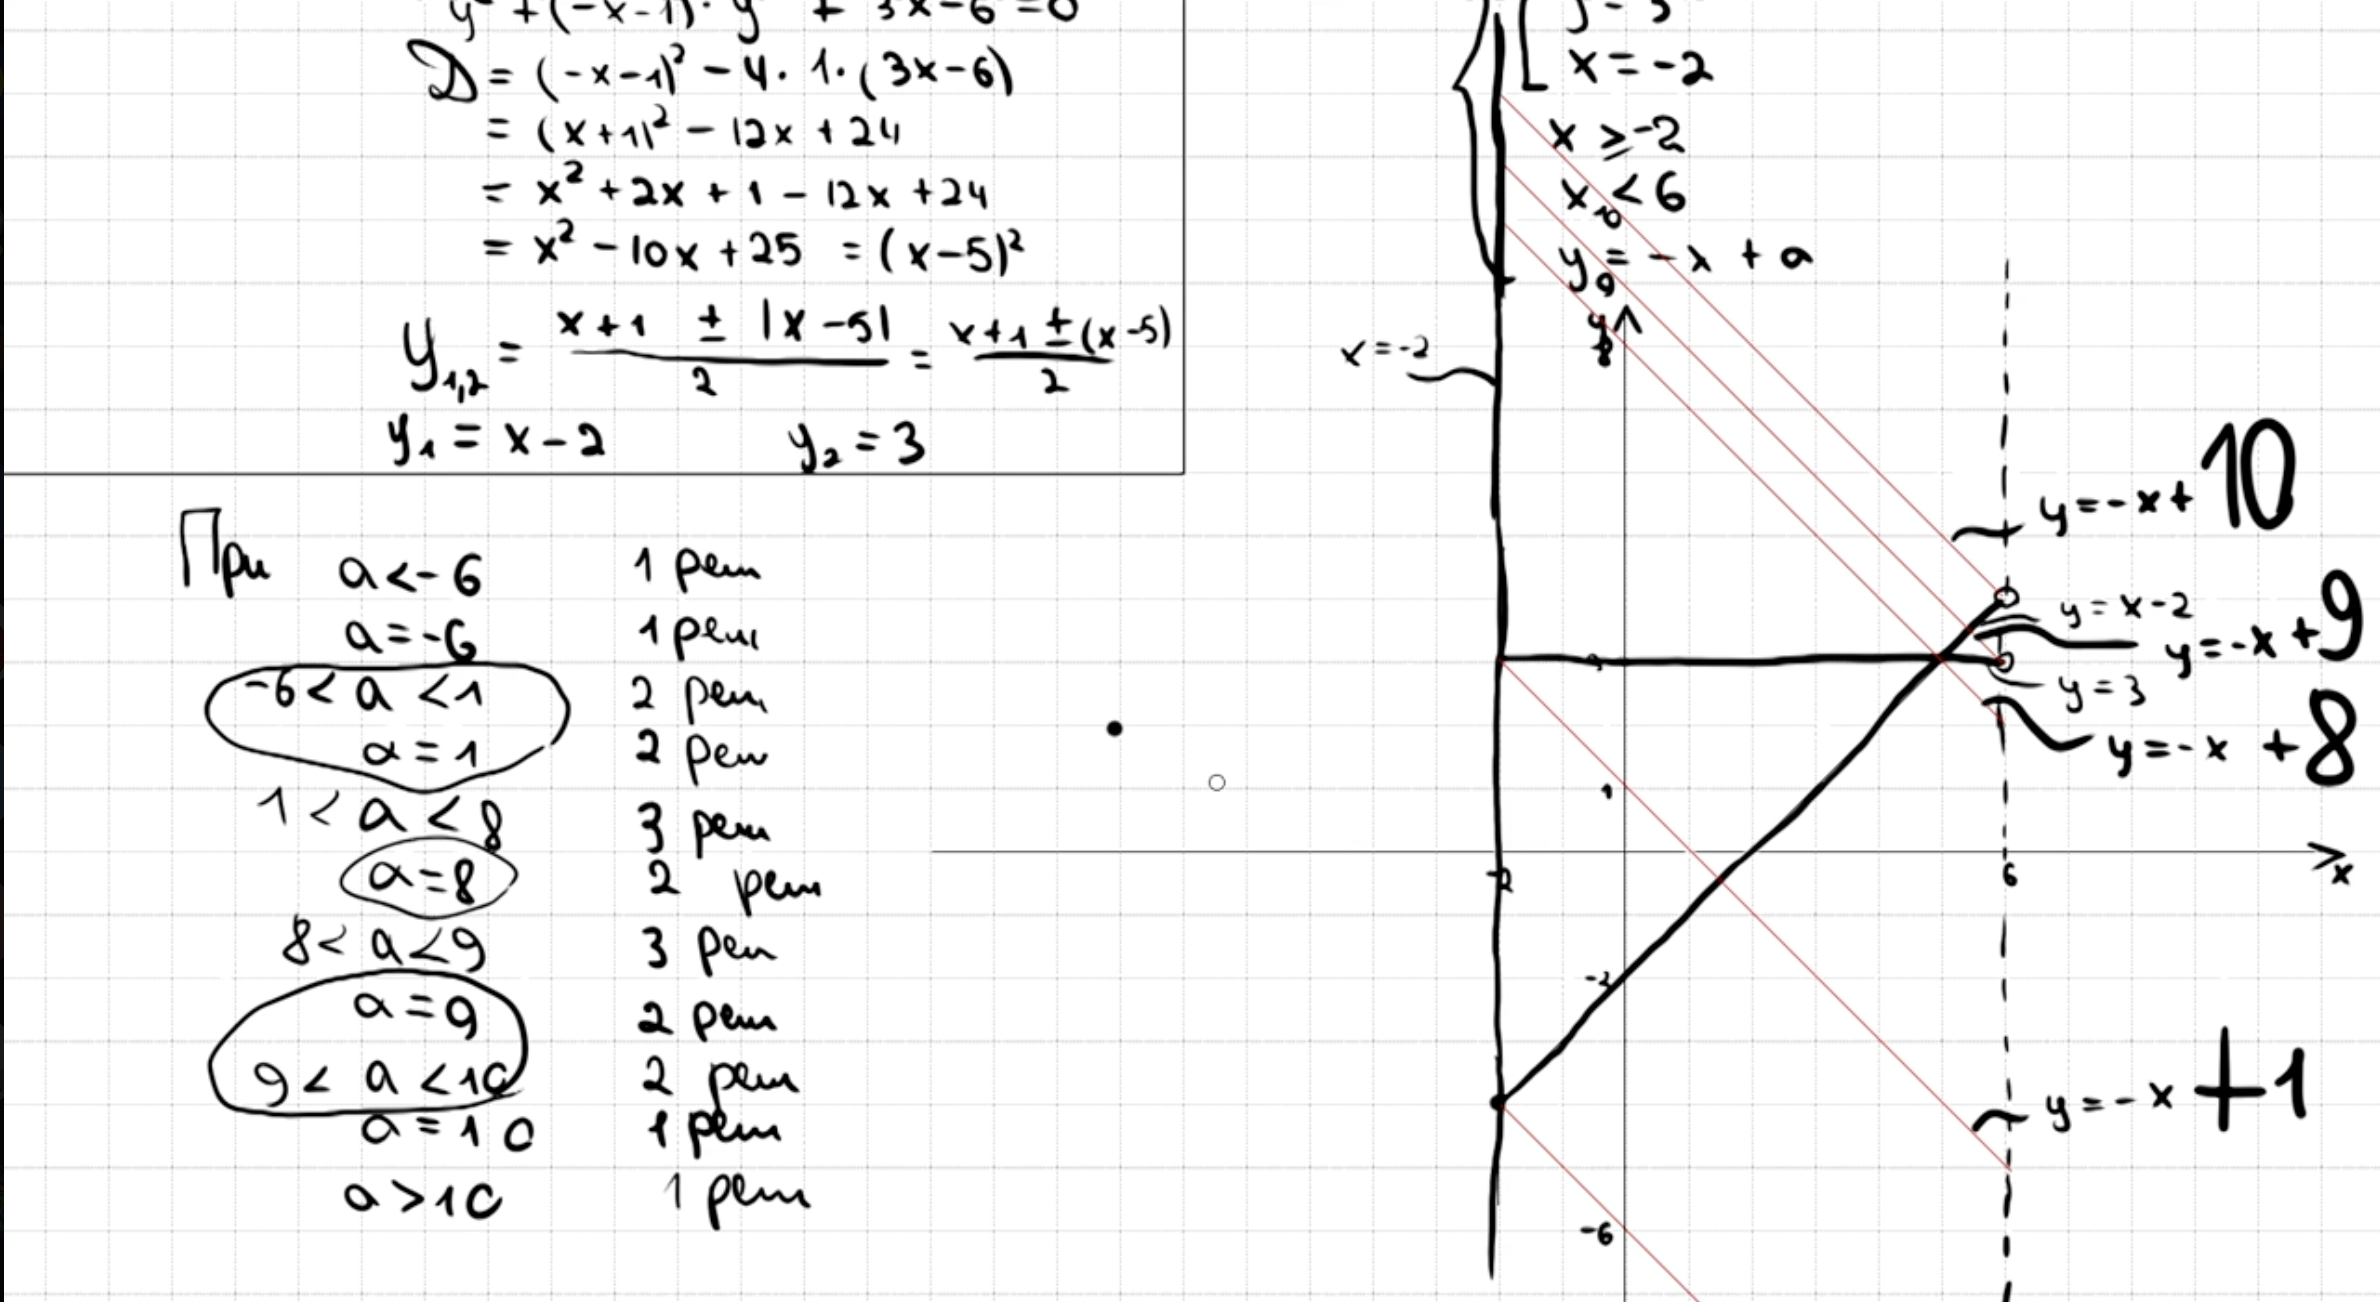 y² + (-x-1)·y + 3x-6 = 0
D = (-x-1)² - 4·1·(3x-6)
= (x+1)² - 12x + 24
= x² + 2x + 1 - 12x + 24
= x² - 10x + 25 = (x-5)²
y₁,₂ = (x+1 ± |x-5|)/2 = (x+1 ± (x-5))/2
y₁ = x-2 y₂ = 3
При a<-6 1 реш
a=-6 1 реш
-6< a <1 2 реш
a=1 2 реш
1 < a < 8 3 реш
a=8 2 реш
8< a<9 3 реш
a=9 2 реш
9< a <10 2 реш
a=10 1 реш
a>10 1 реш
x = -2
x ≥ -2
x < 6
y = -x + a
10
9
8
x = -2
y = -x + 10
y = x-2
y = -x + 9
y = 3
y = -x + 8
3
1
-2
6
x
-2
y = -x + 1
-6